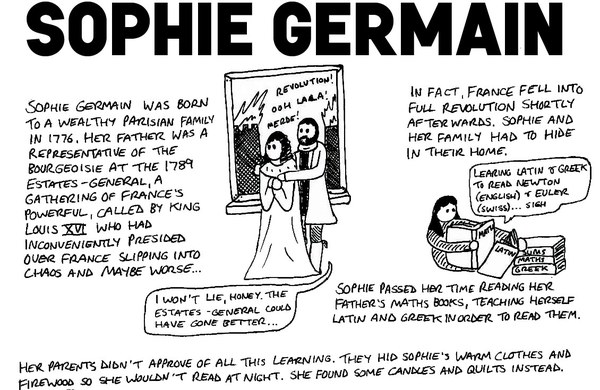 SOPHIE GERMAIN
SOPHIE GERMAIN WAS BORN
TO A WEALTHY PARISIAN FAMILY
IN 1776. HER FATHER WAS A
REPRESENTATIVE OF THE
BOURGEOISIE AT THE 1789
ESTATES-GENERAL, A
GATHERING OF FRANCE'S
POWERFUL, CALLED BY KING
LOUIS XVI WHO HAD
INCONVENIENTLY PRESIDED
OVER FRANCE SLIPPING INTO
CHAOS AND MAYBE WORSE...
REVOLUTION!
OOH LALA!
MERDE!
I WON'T LIE, HONEY. THE
ESTATES-GENERAL COULD
HAVE GONE BETTER...
IN FACT, FRANCE FELL INTO
FULL REVOLUTION SHORTLY
AFTERWARDS. SOPHIE AND
HER FAMILY HAD TO HIDE
IN THEIR HOME.
LEARING LATIN & GREEK
TO READ NEWTON
(ENGLISH) & EULER
(SWISS)... SIGH
MATH
LATIN
SUMS
MATHS
GREEK
SOPHIE PASSED HER TIME READING HER
FATHER'S MATHS BOOKS, TEACHING HERSELF
LATIN AND GREEK IN ORDER TO READ THEM.
HER PARENTS DIDN'T APPROVE OF ALL THIS LEARNING. THEY HID SOPHIE'S WARM CLOTHES AND
FIREWOOD SO SHE WOULDN'T READ AT NIGHT. SHE FOUND SOME CANDLES AND QUILTS INSTEAD.